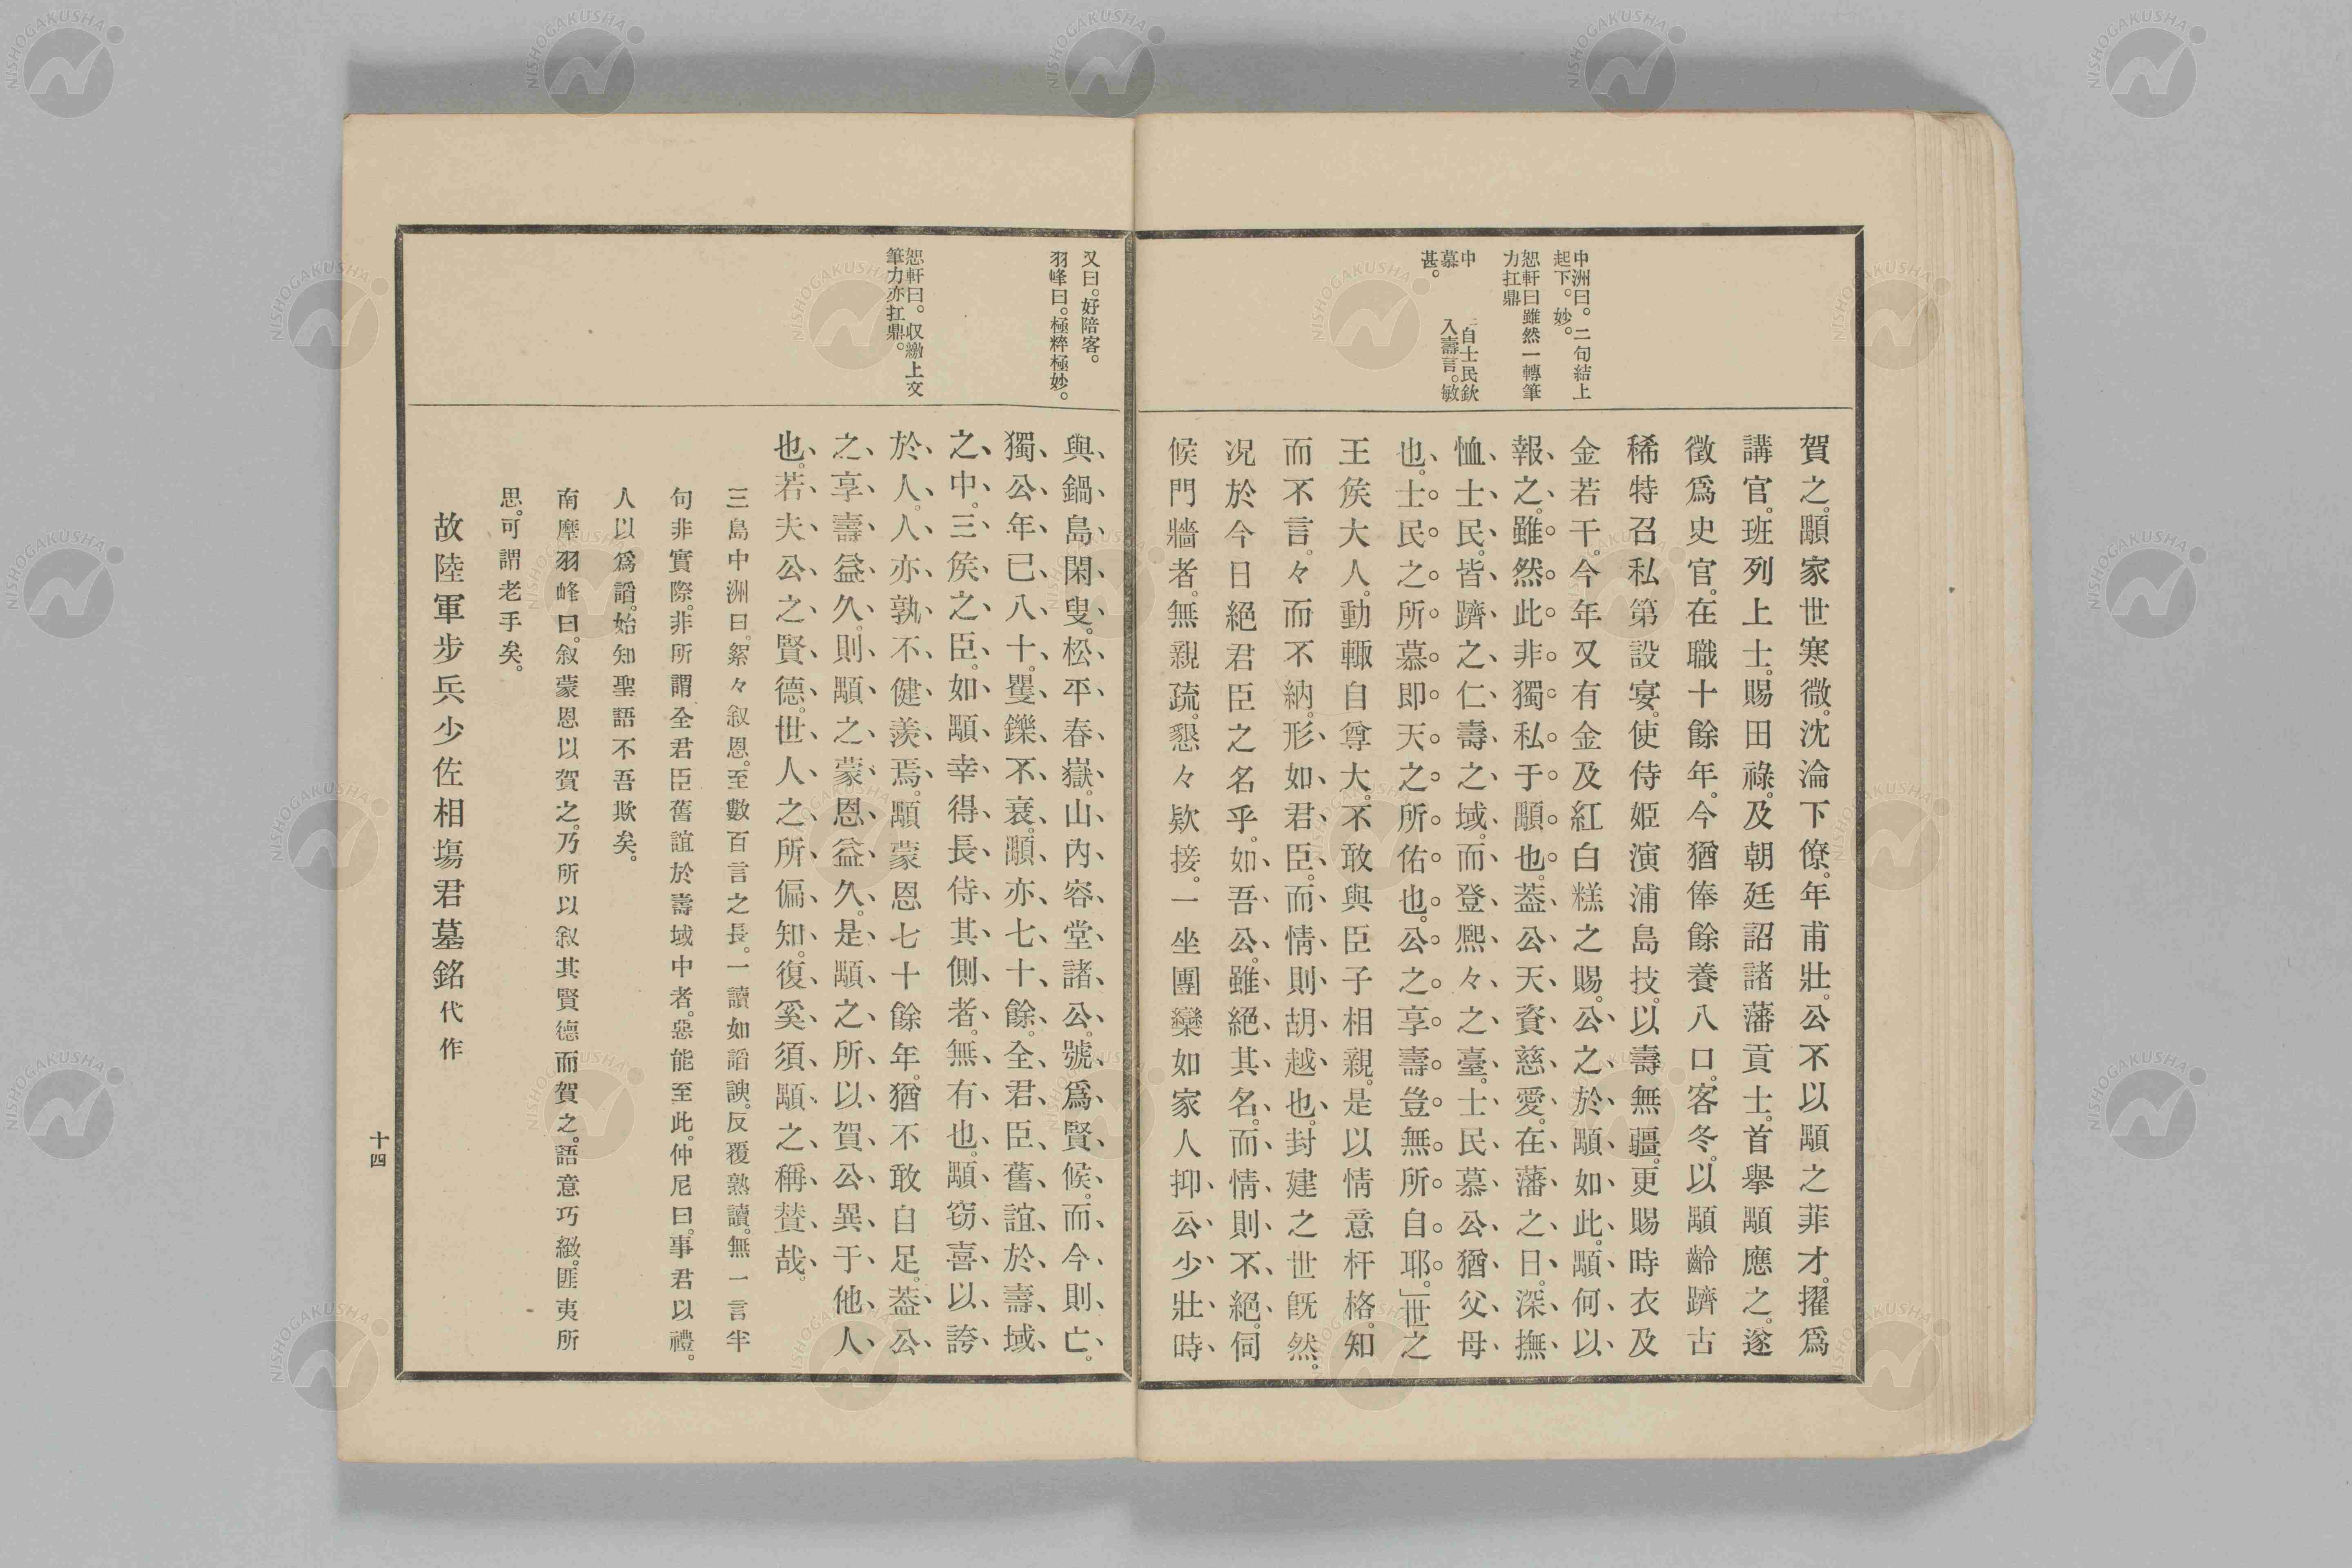 中洲曰。二句結上
起下。妙。
恕軒曰雖然一轉筆
力扛鼎
中 自士民欽
慕 入壽言。敏
甚。
賀之。顒家世寒微。沈淪下僚。年甫壯。公不以顒之菲才。擢爲
講官。班列上士。賜田祿。及朝廷詔諸藩貢士。首擧顒應之。遂
徵爲史官。在職十餘年。今猶俸餘養八口。客冬。以顒齡躋古
稀特召私第設宴。使侍姬演浦島技。以壽無疆。更賜時衣及
金若干。今年又有金及紅白糕之賜。公之於顒如此。顒何以
報之。雖然此非獨私于顒也。蓋公天資慈愛。在藩之日。深撫
恤士民。皆躋之仁壽之域。而登熈々之臺。士民慕公猶父母
也。士民之所慕。即天之所佑也。公之享壽。豈無所自耶。世之
王矦大人。動輙自尊大。不敢與臣子相親。是以情意杆格。知
而不言。々而不納。形如君臣。而情則胡越也。封建之世既然。
况於今日絕君臣之名乎。如吾公。雖絕其名。而情則不絕。伺
候門牆者。無親疏。懇々欵接。一坐團欒如家人抑公少壯時
又曰。好陪客。
羽峰曰。極粹極妙。
恕軒曰。収繳上文
筆力亦扛鼎。
與鍋島閑叟。松平春嶽。山內容堂諸公。號爲賢候。而今則亡。
獨公年已八十。矍鑠不衰。顒亦七十餘。全君臣舊誼於壽域
之中。三矦之臣。如顒幸得長侍其側者。無有也。顒窃喜以誇
於人。人亦孰不健羨焉。顒蒙恩七十餘年。猶不敢自足。蓋公
之享壽益久。則顒之蒙恩益久。是顒之所以賀公異于他人
也。若夫公之賢德。世人之所偏知。復奚須顒之稱賛哉。
三島中洲曰。絮々叙恩。至數百言之長。一讀如謟諛。反覆熟讀。無一言半
句非實際。非所謂全君臣舊誼於壽域中者。惡能至此。仲尼曰。事君以禮。
人以爲謟。始知聖語不吾欺矣。
南摩羽峰曰。叙蒙恩以賀之。乃所以叙其賢德而賀之。語意巧緻。匪夷所
思。可謂老手矣。
故陸軍步兵少佐相塲君墓銘代作
十四
NISHOGAKUSHA